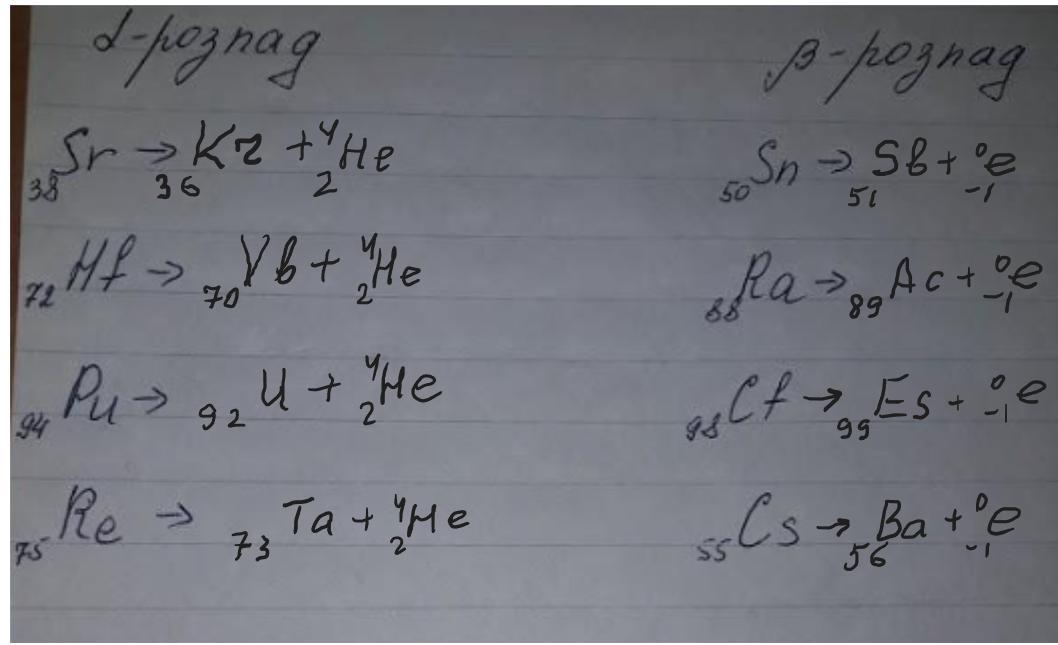 α-розпад β-розпад
₃₈Sr → ₃₆Kr + ⁴₂He ₅₀Sn → ₅₁Sb + ⁰₋₁e
₇₂Hf → ₇₀Yb + ⁴₂He ₈₈Ra → ₈₉Ac + ⁰₋₁e
₉₄Pu → ₉₂U + ⁴₂He ₉₈Cf → ₉₉Es + ⁰₋₁e
₇₅Re → ₇₃Ta + ⁴₂He ₅₅Cs → ₅₆Ba + ⁰₋₁e